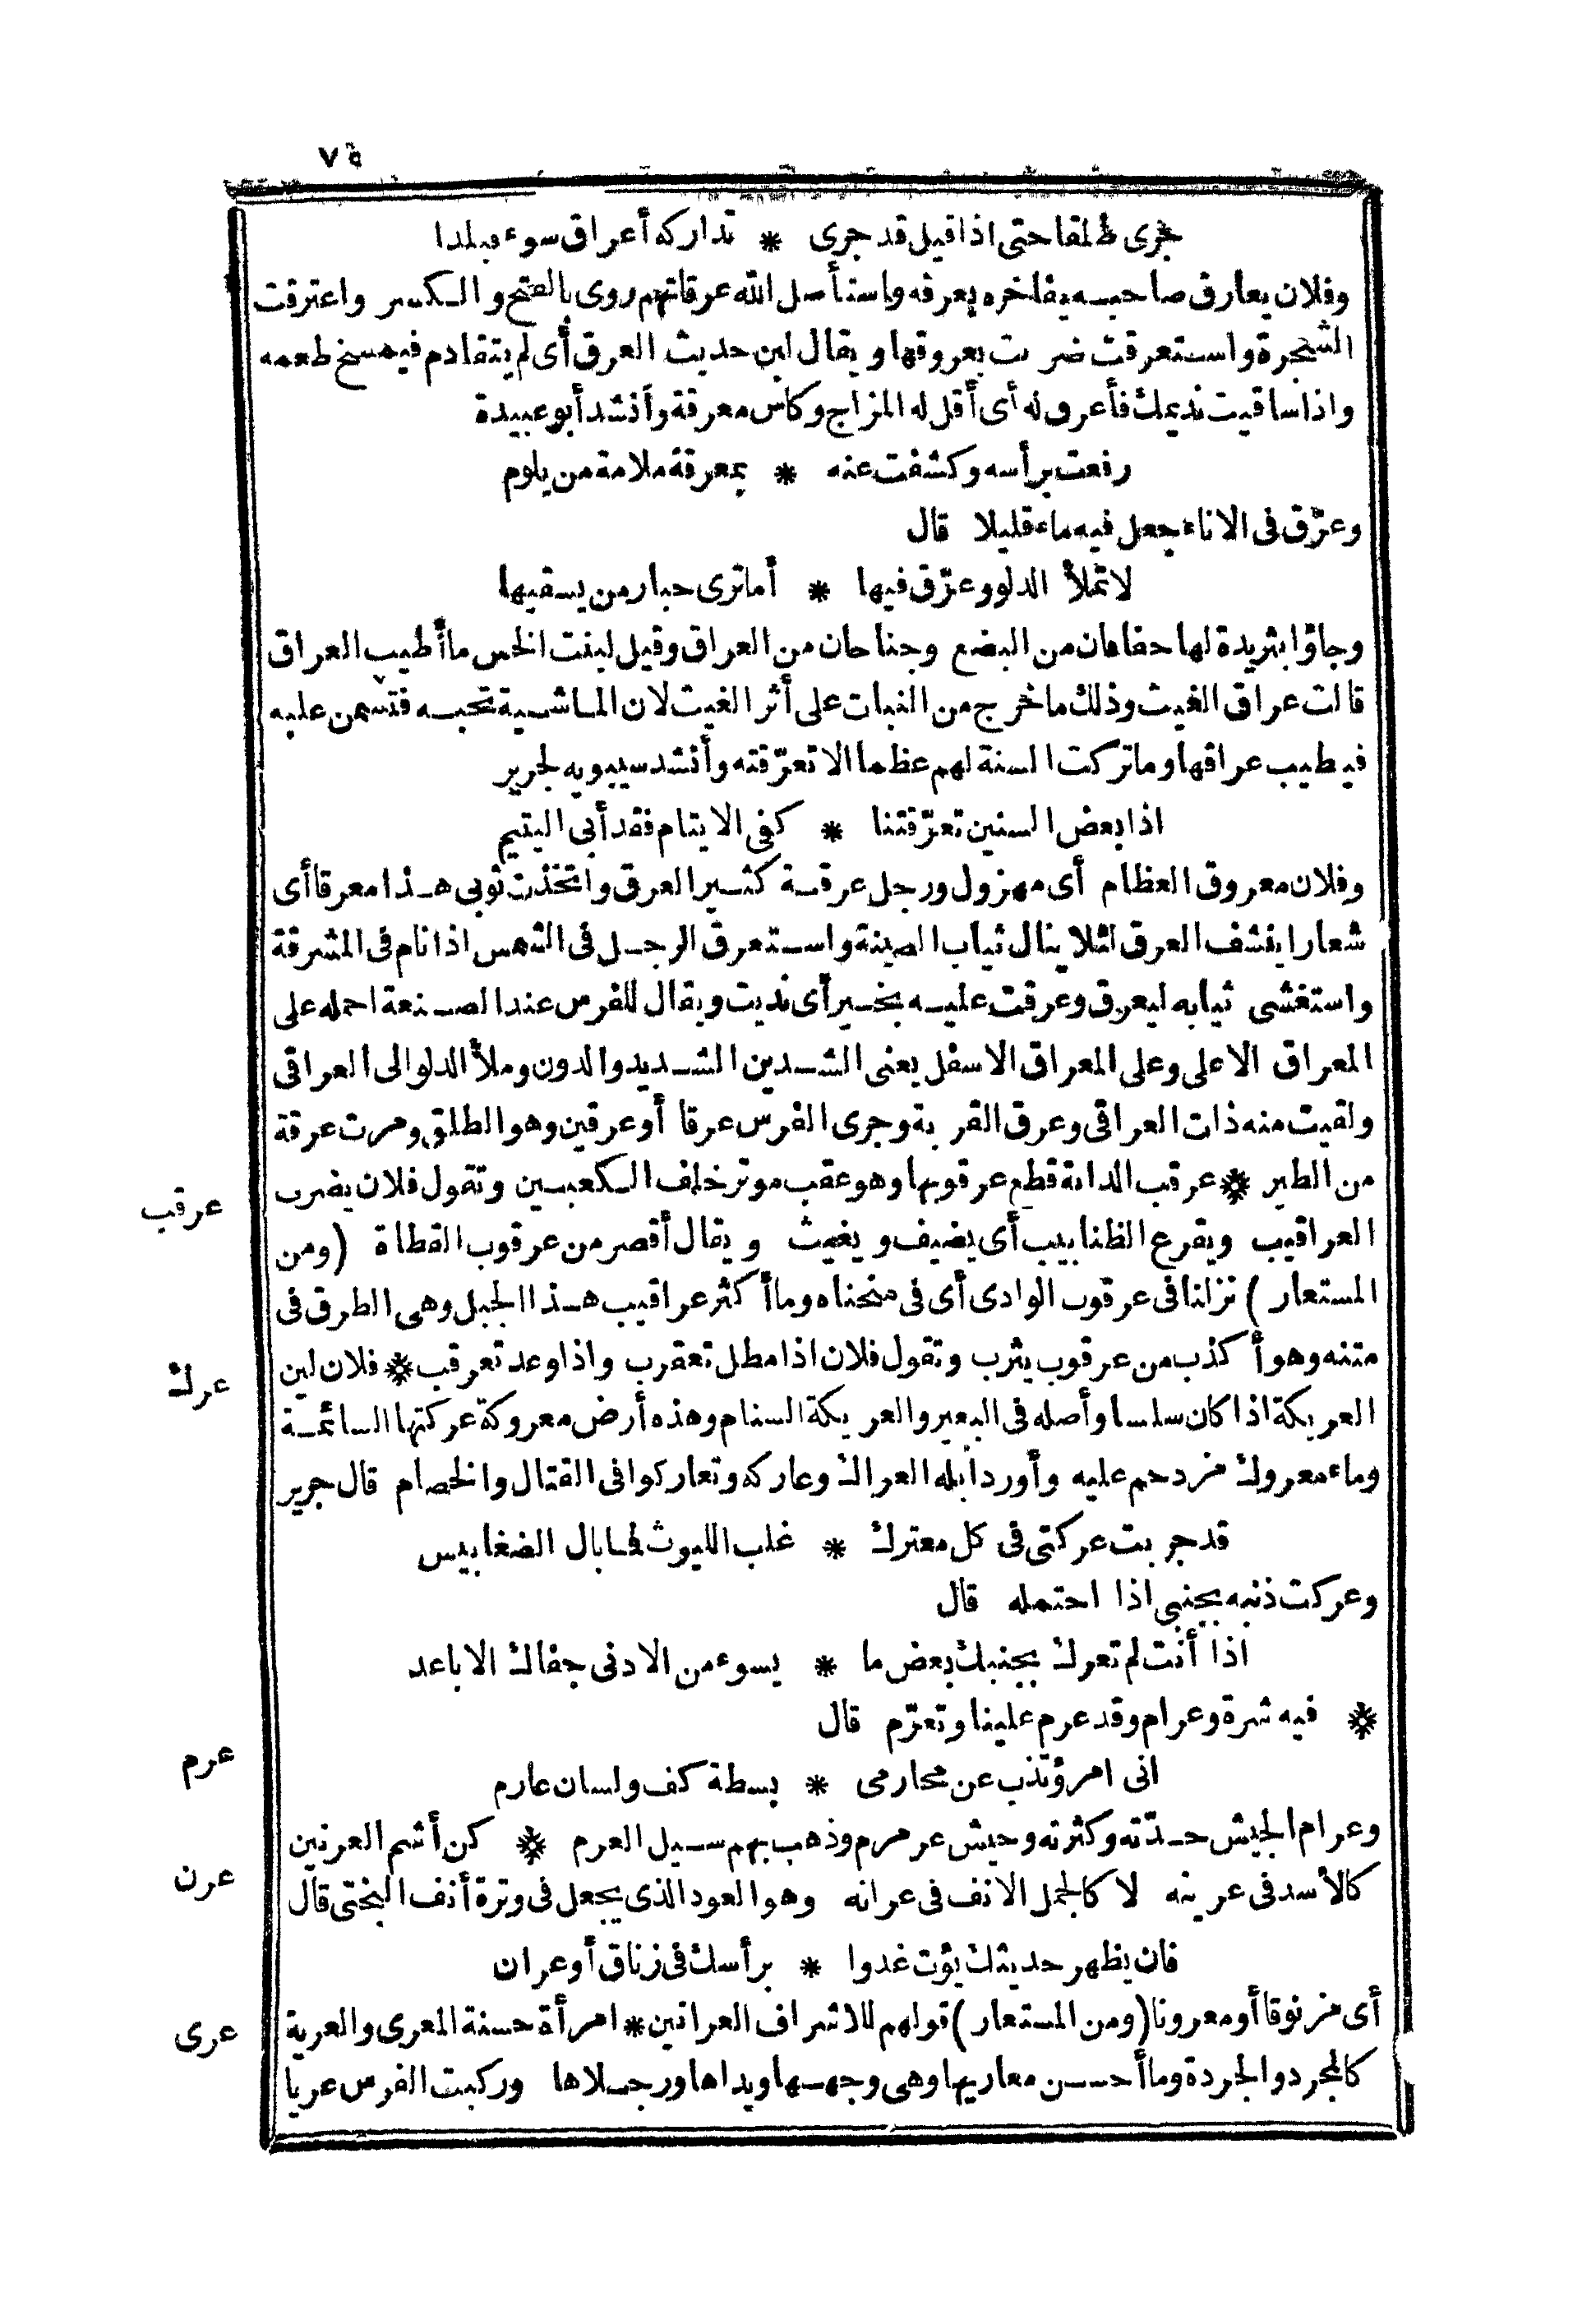 ٧٥
جرى طلقا حتى اذا قيل قد جرى * تداركه أعراق سوء فبلدا
وفلان يعارق صاحبه يفاخره بعرقه واستأصل الله عرقاتهم روى بالفتح والكسر واعترقت
الشجرة واستعرقت ضربت بعروقها ويقال لبن حديث العرق أى لم يتقادم فيمسخ طعمه
واذا ساقيت نديمك فأعرق له أى أقل له المزاج وكاس معرقة وأنشد أبو عبيدة
رفعت برأسه وكشفت عنه * بمعرقة ملامة من يلوم
وعرّق فى الاناء جعل فيه ماء قليلا قال
لا تملأ الدلو وعرّق فيها * أما ترى حبار من يسقيها
وجاؤا بثريدة لها حفافان من البضع وجناحان من العراق وقيل لبنت الخس ما أطيب العراق
قالت عراق الغيث وذلك ما خرج من النبات على أثر الغيث لان الماشية تحبه فتسمن عليه
فيطيب عراقها وما تركت السنة لهم عظما الا تعرّقته وأنشد سيبويه لجرير
اذا بعض السنين تعرّقتنا * كفى الايتام فقد أبى اليتيم
وفلان معروق العظام أى مهزول ورجل عرقة كثير العرق واتخذت ثوبى هذا معرقا أى
شعارا ينشف العرق لئلا ينال ثياب الصينة واستعرق الرجل فى الشمس اذا نام فى المشرقة
واستغشى ثيابه ليعرق وعرقت عليه بخير أى نديت ويقال للفرس عند الصنعة احمله على
المعراق الاعلى وعلى المعراق الاسفل يعنى الشدين الشديد والدون وملأ الدلو الى العراقى
ولقيت منه ذات العراقى وعرق القربة وجرى الفرس عرقا أو عرقين وهو الطلق ومرت عرقة
من الطير * عرقب الدابة قطع عرقوبها وهو عقب موتر خلف الكعبين وتقول فلان يضرب
عرقب
العراقيب ويقرع الظنابيب أى يضيف ويغيث ويقال أقصر من عرقوب القطاة (ومن
المستعار) نزلنا فى عرقوب الوادى أى فى منحناه وما أكثر عراقيب هذا الجبل وهى الطرق فى
متنه وهو أكذب من عرقوب يثرب وتقول فلان اذا مطل تعقرب واذا وعد تعرقب * فلان لين
عرك
العريكة اذا كان سلسا وأصله فى البعير والعريكة السنام وهذه أرض معروكة عركتها السائمة
وماء معروك مزدحم عليه وأورد ابله العراك وعاركه وتعاركوا فى القتال والخصام قال جرير
قد جربت عركتى فى كل معترك * غلب الليوث فما بال الضغابيس
وعركت ذنبه بجنبى اذا احتمله قال
اذا أنت لم تعرك بجنبك بعض ما * يسوء من الادنى جفاك الاباعد
* فيه شرة وعرام وقد عرم علينا وتعرّم قال
عرم
انى امرؤ تذب عن محارمى * بسطة كف ولسان عارم
وعرام الجيش حدّته وكثرته وجيش عرمرم وذهب بهم سيل العرم * كن أشم العرنين
عرن
كالأسد فى عرينه لا كالجمل الانف فى عرانه وهو العود الذى يجعل فى وترة أنف البختى قال
فان يظهر حديثك يؤت غدوا * برأسك فى زناق أو عران
أى مزنوقا أو معرونا (ومن المستعار) قولهم للاشراف العرانين * امرأة حسنة المعرى والعرية
عرى
كالمجرد والجردة وما أحسن معاريها وهى وجهها ويداها ورجلاها وركبت الفرس عريا